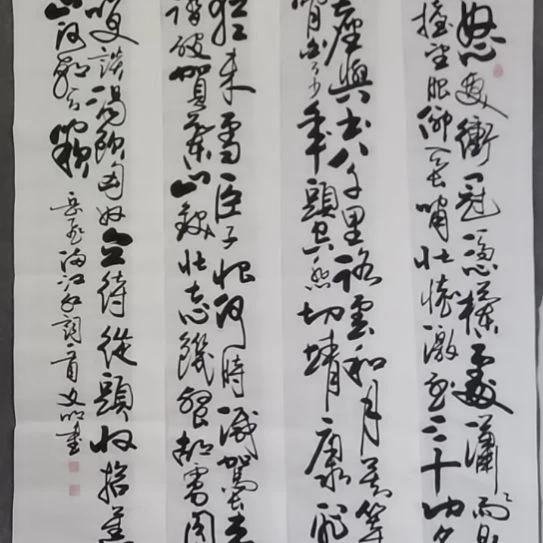 怒髮衝冠憑欄處瀟々雨
擡望眼仰天長嘯壯懷激烈三十功名
塵與土八千里路雲和月莫等
閒白了少年頭空悲切靖康恥
猶未雪臣子恨何時滅駕長車
踏破賀蘭山缺壯志飢餐胡虜肉
笑談渴飲匈奴血待從頭收拾舊
山河朝天闕
岳飛滿江紅詞一首 文明書